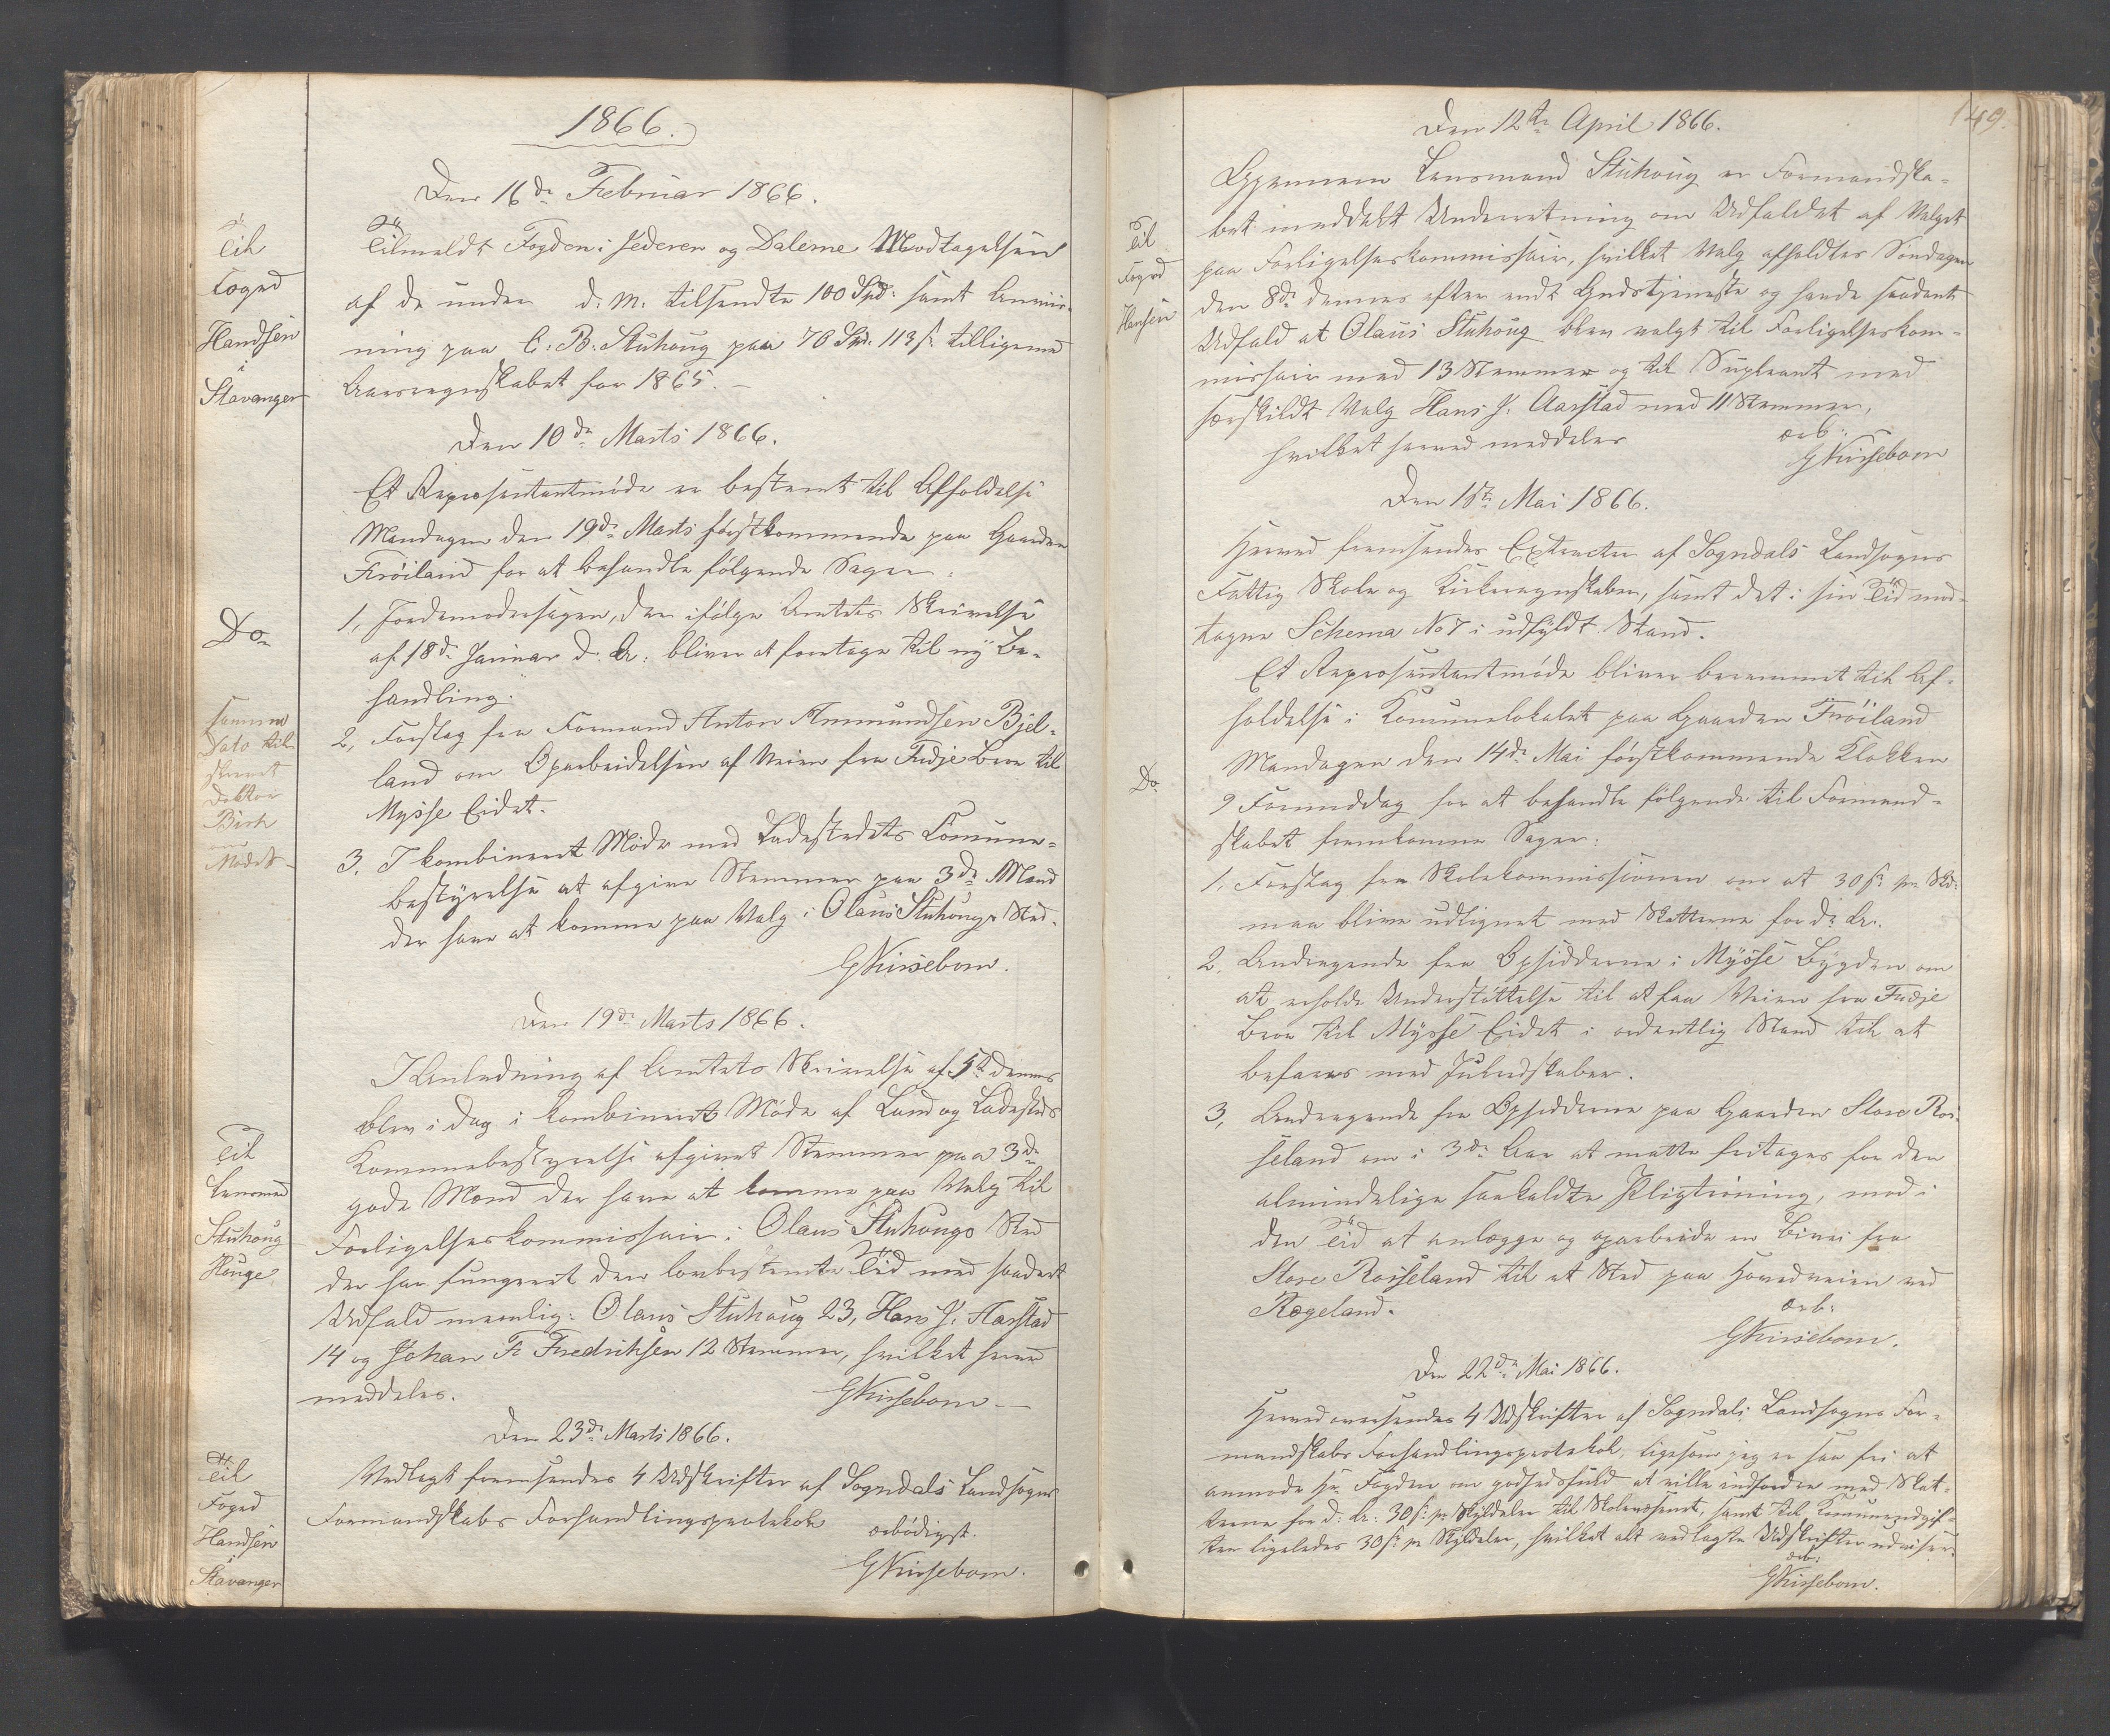 1866.
Den 16de Februar 1866.
Til
Foged
Handsen
i
Stavanger
Tilmeldt Fogden i Jederen og Dalerne Modtagelsen
af de under d. M. tilsendte 100 Spd: samt Anviis-
ning paa C. B. Stuhoug paa 70 Spd. 113 s. tilligemed
Aarsregnskabet for 1865. –
Den 10de Marts 1866.
Do
Et Repræsentantmöde er bestemt til Afholdelse
Mandagen den 19de Marts förstkommende paa Gaarden
Fröiland for at behandle fölgende Sager:
1, Jordemodersagen, der ifölge Amtets Skrivelse
af 18de Januar d. A: bliver at foretage til ny Be-
handling.
Samme
Dato til-
skrevet
Doktor
om
Mödet
2, Forslag fra Formand Anton Ammundsen Bjel-
land om Oparbeidelsen af Veien fra Fidje Bro til
Mysse Eidet.
3. I kombineret Möde med Ladestedets Comune-
bestyrelse at afgive Stemmer paa 3de Mænd
der have at komme paa Valg i Olaus Stuhougs Sted.
GKirsebom.
Den 19de Marts 1866.
Til
Lensmand
Stuhoug
Houge
I Anledning af Amtets Skrivelse af 5te dennes
blev i Dag i kombineret Möde af Land og Ladesteds
Kommunebestyrelse afgivet Stemmer paa 3de
gode Mænd der have at komme paa Valg til
Forligelseskommissair i Olaus Stuhougs Sted
der har fungeret den lovbestemte Tid med saadant
Udfald nemlig: Olaus Stuhoug 23, Hans J. Aarstad
14 og Johan Fr Fredriksen 12 Stemmer, hvilket herved
meddeles.
GKirsebom –
Den 23de Marts 1866.
Til
Foged
Handsen
i
Stavanger
Vedlagt fremsendes 4 Udskrifter af Sogndals Landsogns
Formandskabs Forhandlingsprotokol
ærbödigst.
GKirsebom.
149.
Den 12te April 1866.
Til
Foged
Hansen
Gjennem Lensmand Stuhoug er Formandska-
bet meddelt Underretning om Udfaldet af Valget
paa Forligelseskommissair, hvilket Valg afholdtes Söndagen
den 8de dennes efter endt Gudstjeneste og havde saadant
Udfald at Olaus Stuhoug blev valgt til Forligelseskom-
missair med 13 Stemmer og til Supleant med
særskildt Valg Hans J. Aarstad med 11 Stemmer,
hvilket herved meddeles
ærb:
GKirsebom
Den 1ste Mai 1866.
Herved fremsendes Extracter af Sogndals Landsogns
Fattig Skole og Kirkeregnskaber, samt det i sin Tid mod-
tagne Schema No 7 i udfyldt Stand.
Do
Et Repræsentantmöde bliver berammet til Af-
holdelse i Komunelokalet paa Gaarden Fröiland
Mandagen den 14de Mai förstkommende Klokken
9 Formiddag for at behandle fölgende til Formand-
skabet fremkomne Sager:
1, Forslag fra Skolekommissionen om at 30 s. pr Skd:
maa blive udlignet med Skatterne for d: A:.
2, Andragende fra Opsidderne i Mysse Bygden om
at erholde Understöttelse til at faa Veien fra Fidje
Bro til Mysse Eidet i ordentlig Stand til at
befares med Juleredskaber.
3, Andragende fra Opsidderne paa Gaarden Store Ros-
seland om i 3de Aar at maatte fritages for den
almindelige saakaldte Pligtröining, mod i
den Tid at anlægge og oparbeide en Bivei fra
Store Rosseland til et Sted paa Hovedveien ved
Rægeland.
ærb:
GKirsebom.
Den 22de Mai 1866.
Herved oversendes 4 Udskrifter af Sogndals Landsogns For-
mandskabs Forhandlingsprotokol, ligesom jeg er saa fri at
anmode Hr. Fogden om godhedsfuld at ville indfordre med Skat-
terne for d: A: 30 s. pr Skylddaler til Skolevæsenet, samt til Kommuneudgif-
ter ligeledes 30 s. pr Skylddaler, hvilket alt vedlagte Udskrifter udviser.
ærb:
GKirsebom.